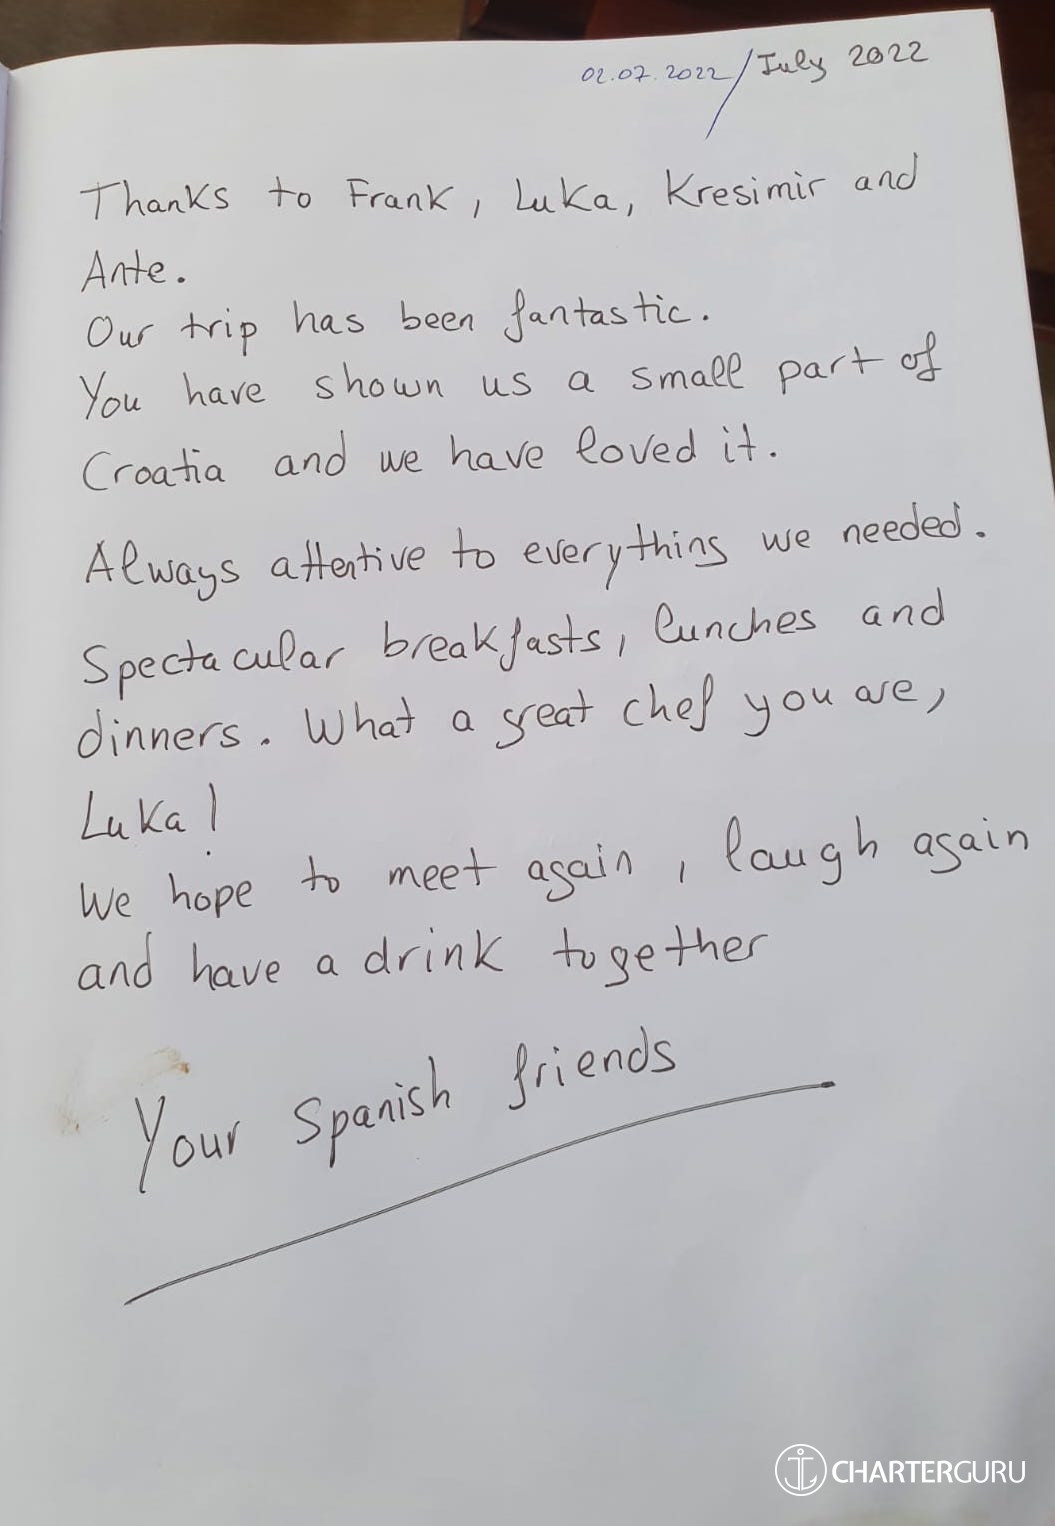 02.07.2022/July 2022
Thanks to Frank, Luka, Kresimir and
Ante.
Our trip has been fantastic.
You have shown us a small part of
Croatia and we have loved it.
Always attentive to everything we needed.
Spectacular breakfasts, lunches and
dinners. What a great chef you are,
Luka!
We hope to meet again, laugh again
and have a drink together
Your Spanish friends
CHARTERGURU